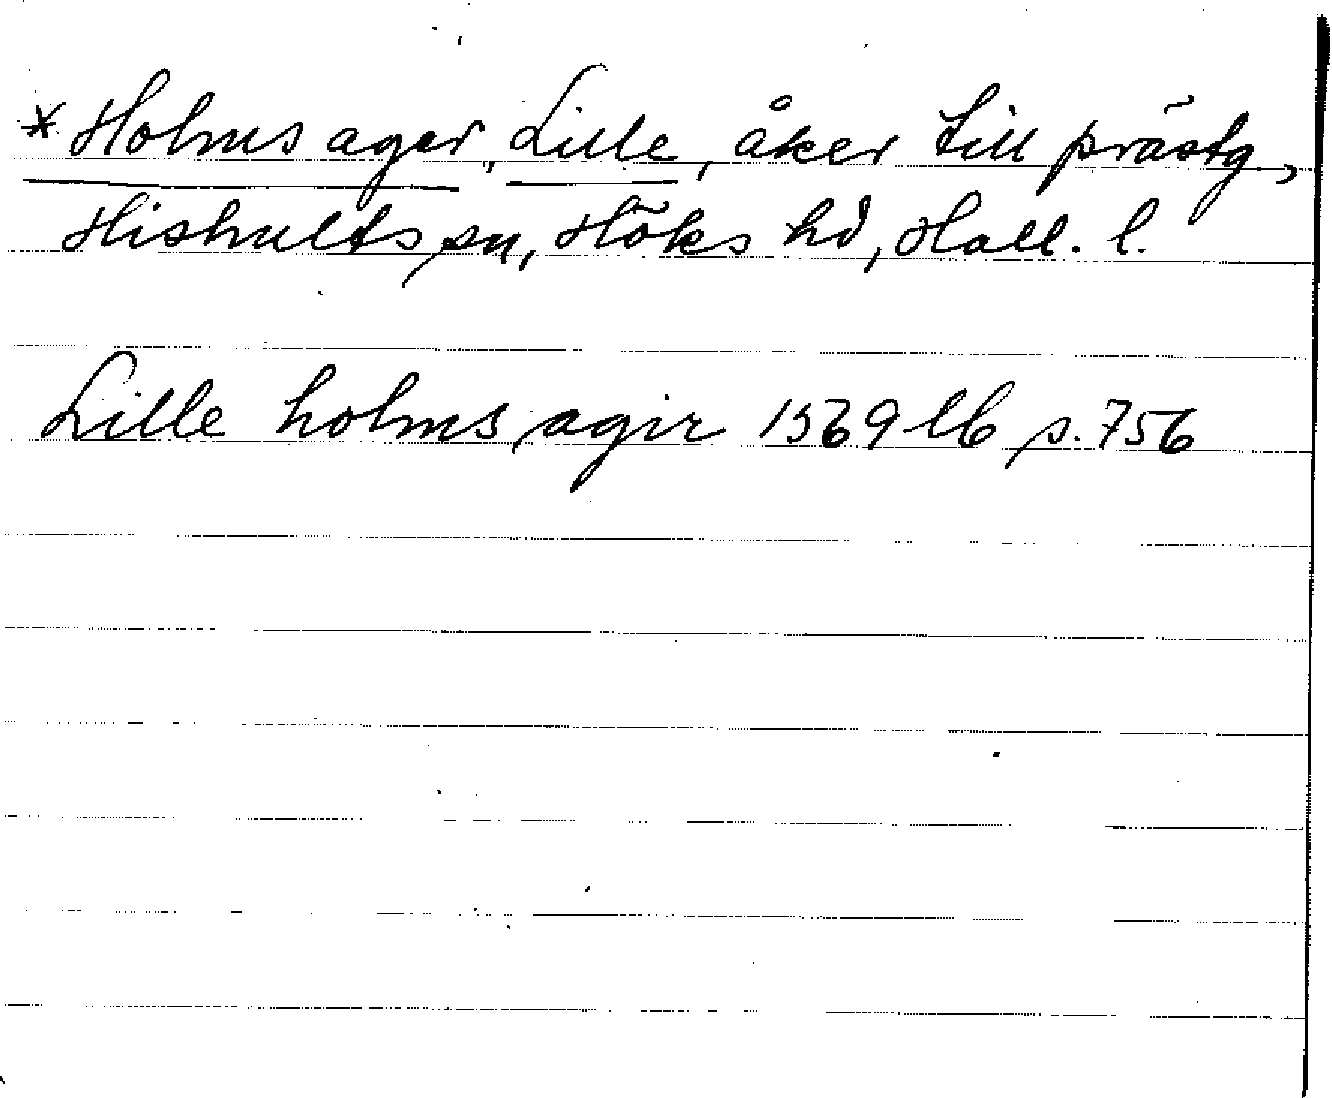 * Holms ager, Lille, åker till prästg,
Hishults sn, Höks hd, Hall. l.
Lille holms agir 1569 lb s. 756